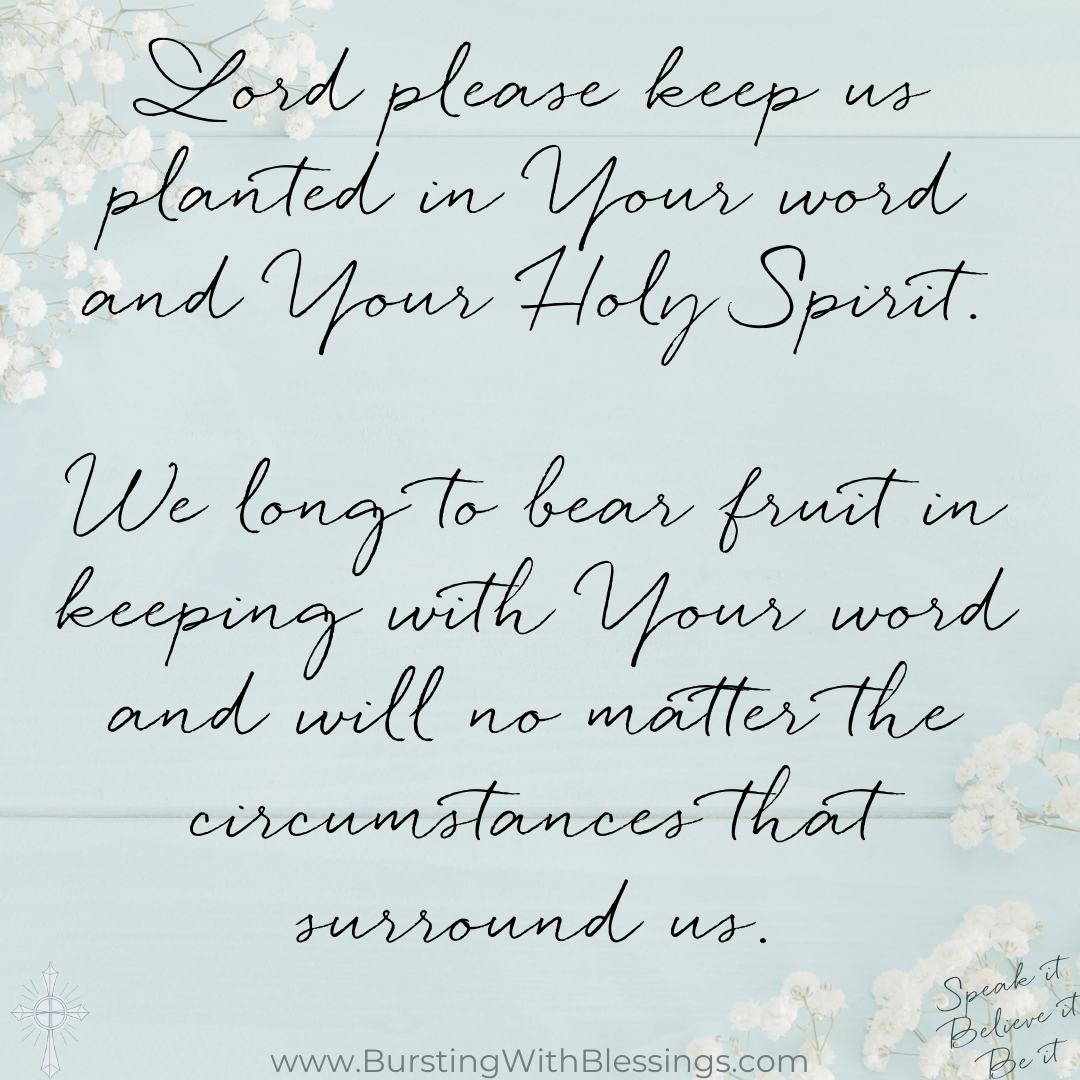 Lord please keep us
planted in Your word
and Your Holy Spirit.
We long to bear fruit in
keeping with Your word
and will no matter the
circumstances that
surround us.
Speak it
Believe it
Be it
www.BurstingWithBlessings.com